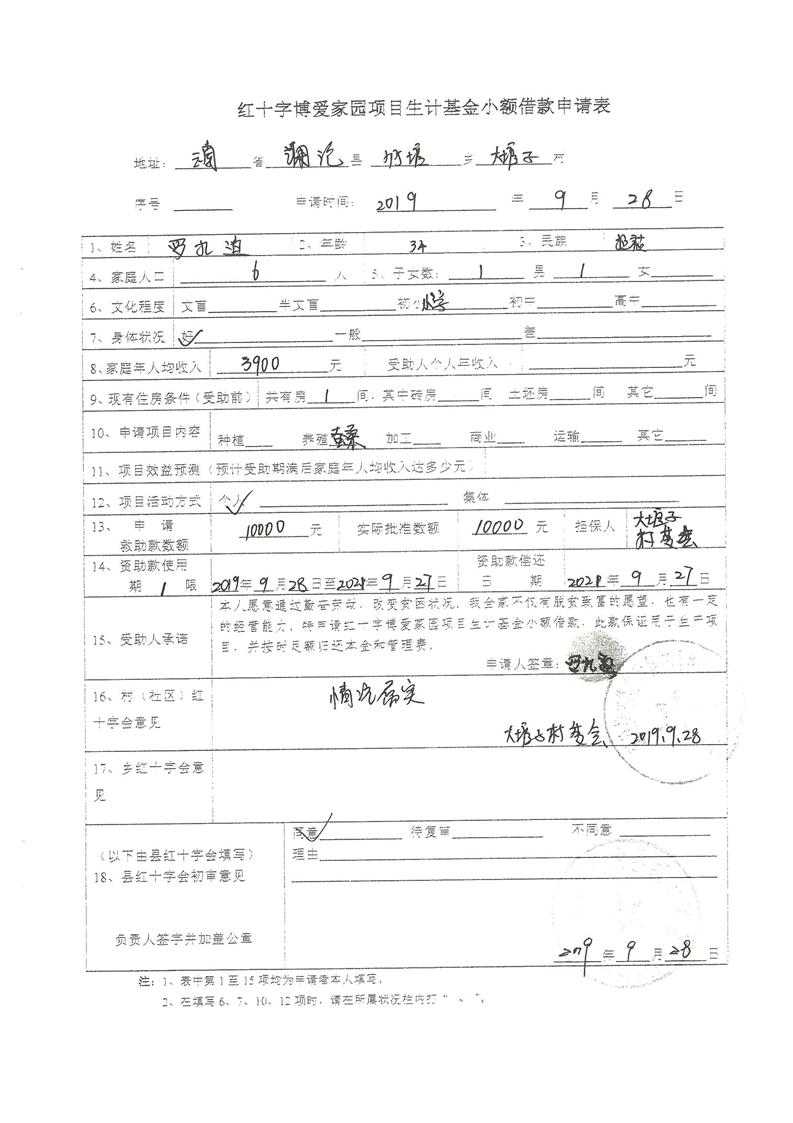 红十字博爱家园项目生计基金小额借款申请表
地址: 云南 省 澜沧 县 竹塘 乡 大塘子 村
序号 申请时间: 2019 年 9 月 28 日
1、姓名 罗九 2、年龄 34 3、民族 拉祜
4、家庭人口 6 人 5、子女数: 1 男 1 女
6、文化程度 文盲 半文盲 初小 小学 初中 高中
7、身体状况 好✓ 一般 差
8、家庭年人均收入 3900 元 受助人个人年收入 元
9、现有住房条件(受助前) 共有房 1 间,其中砖房 间 土坯房 间 其它 间
10、申请项目内容 种植 养殖 蚕桑 加工 商业 运输 其它
11、项目效益预测(预计受助期满后家庭年人均收入达多少元)
12、项目活动方式 个人✓ 集体
13、申请救助款数额 10000 元 实际批准数额 10000 元 担保人 大塘子村委会
14、资助款使用期 1 限 2019年9月28日至2021年9月27日 资助款偿还日期 2021年9月27日
15、受助人承诺
本人愿意通过勤奋劳动,改变贫困状况,我全家不仅有脱贫致富的愿望,也有一定
的经营能力,特申请红十字博爱家园项目生计基金小额借款,此款保证用于生产项
目,并按时足额归还本金和管理费。
申请人签章: 罗九
16、村(社区)红十字会意见
情况属实
大塘子村委会 2019.9.28
17、乡红十字会意见
(以下由县红十字会填写)
18、县红十字会初审意见
同意✓ 待复审 不同意
理由
负责人签字并加盖公章
2019 年 9 月 28 日
注: 1、表中第1至15项均为申请者本人填写。
2、在填写6、7、10、12项时,请在所属状况栏内打“、”。